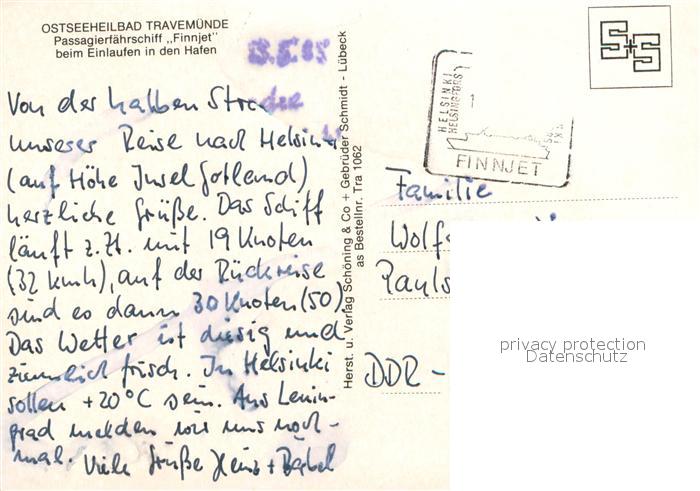 OSTSEEHEILBAD TRAVEMÜNDE
Passagierfährschiff „Finnjet"
beim Einlaufen in den Hafen
Von der halben Strecke
unserer Reise nach Helsinki
(auf Höhe Insel Gotland)
herzliche Grüße. Das Schiff
läuft z.Zt. mit 19 Knoten
(32 kmh), auf der Rückreise
sind es dann 30 Knoten (50).
Das Wetter ist diesig und
ziemlich frisch. In Helsinki
sollen +20°C sein. Aus Lenin-
grad melden wir uns noch-
mal. Viele Grüße Heinz + Bärbel
Herst. u. Verlag Schöning & Co + Gebrüder Schmidt - Lübeck
as Bestellnr. Tra 1062
S+S
HELSINKI
HELSINGFORS
1
FINNJET
Familie
Wolfg
Pauls
DDR -
privacy protection
Datenschutz